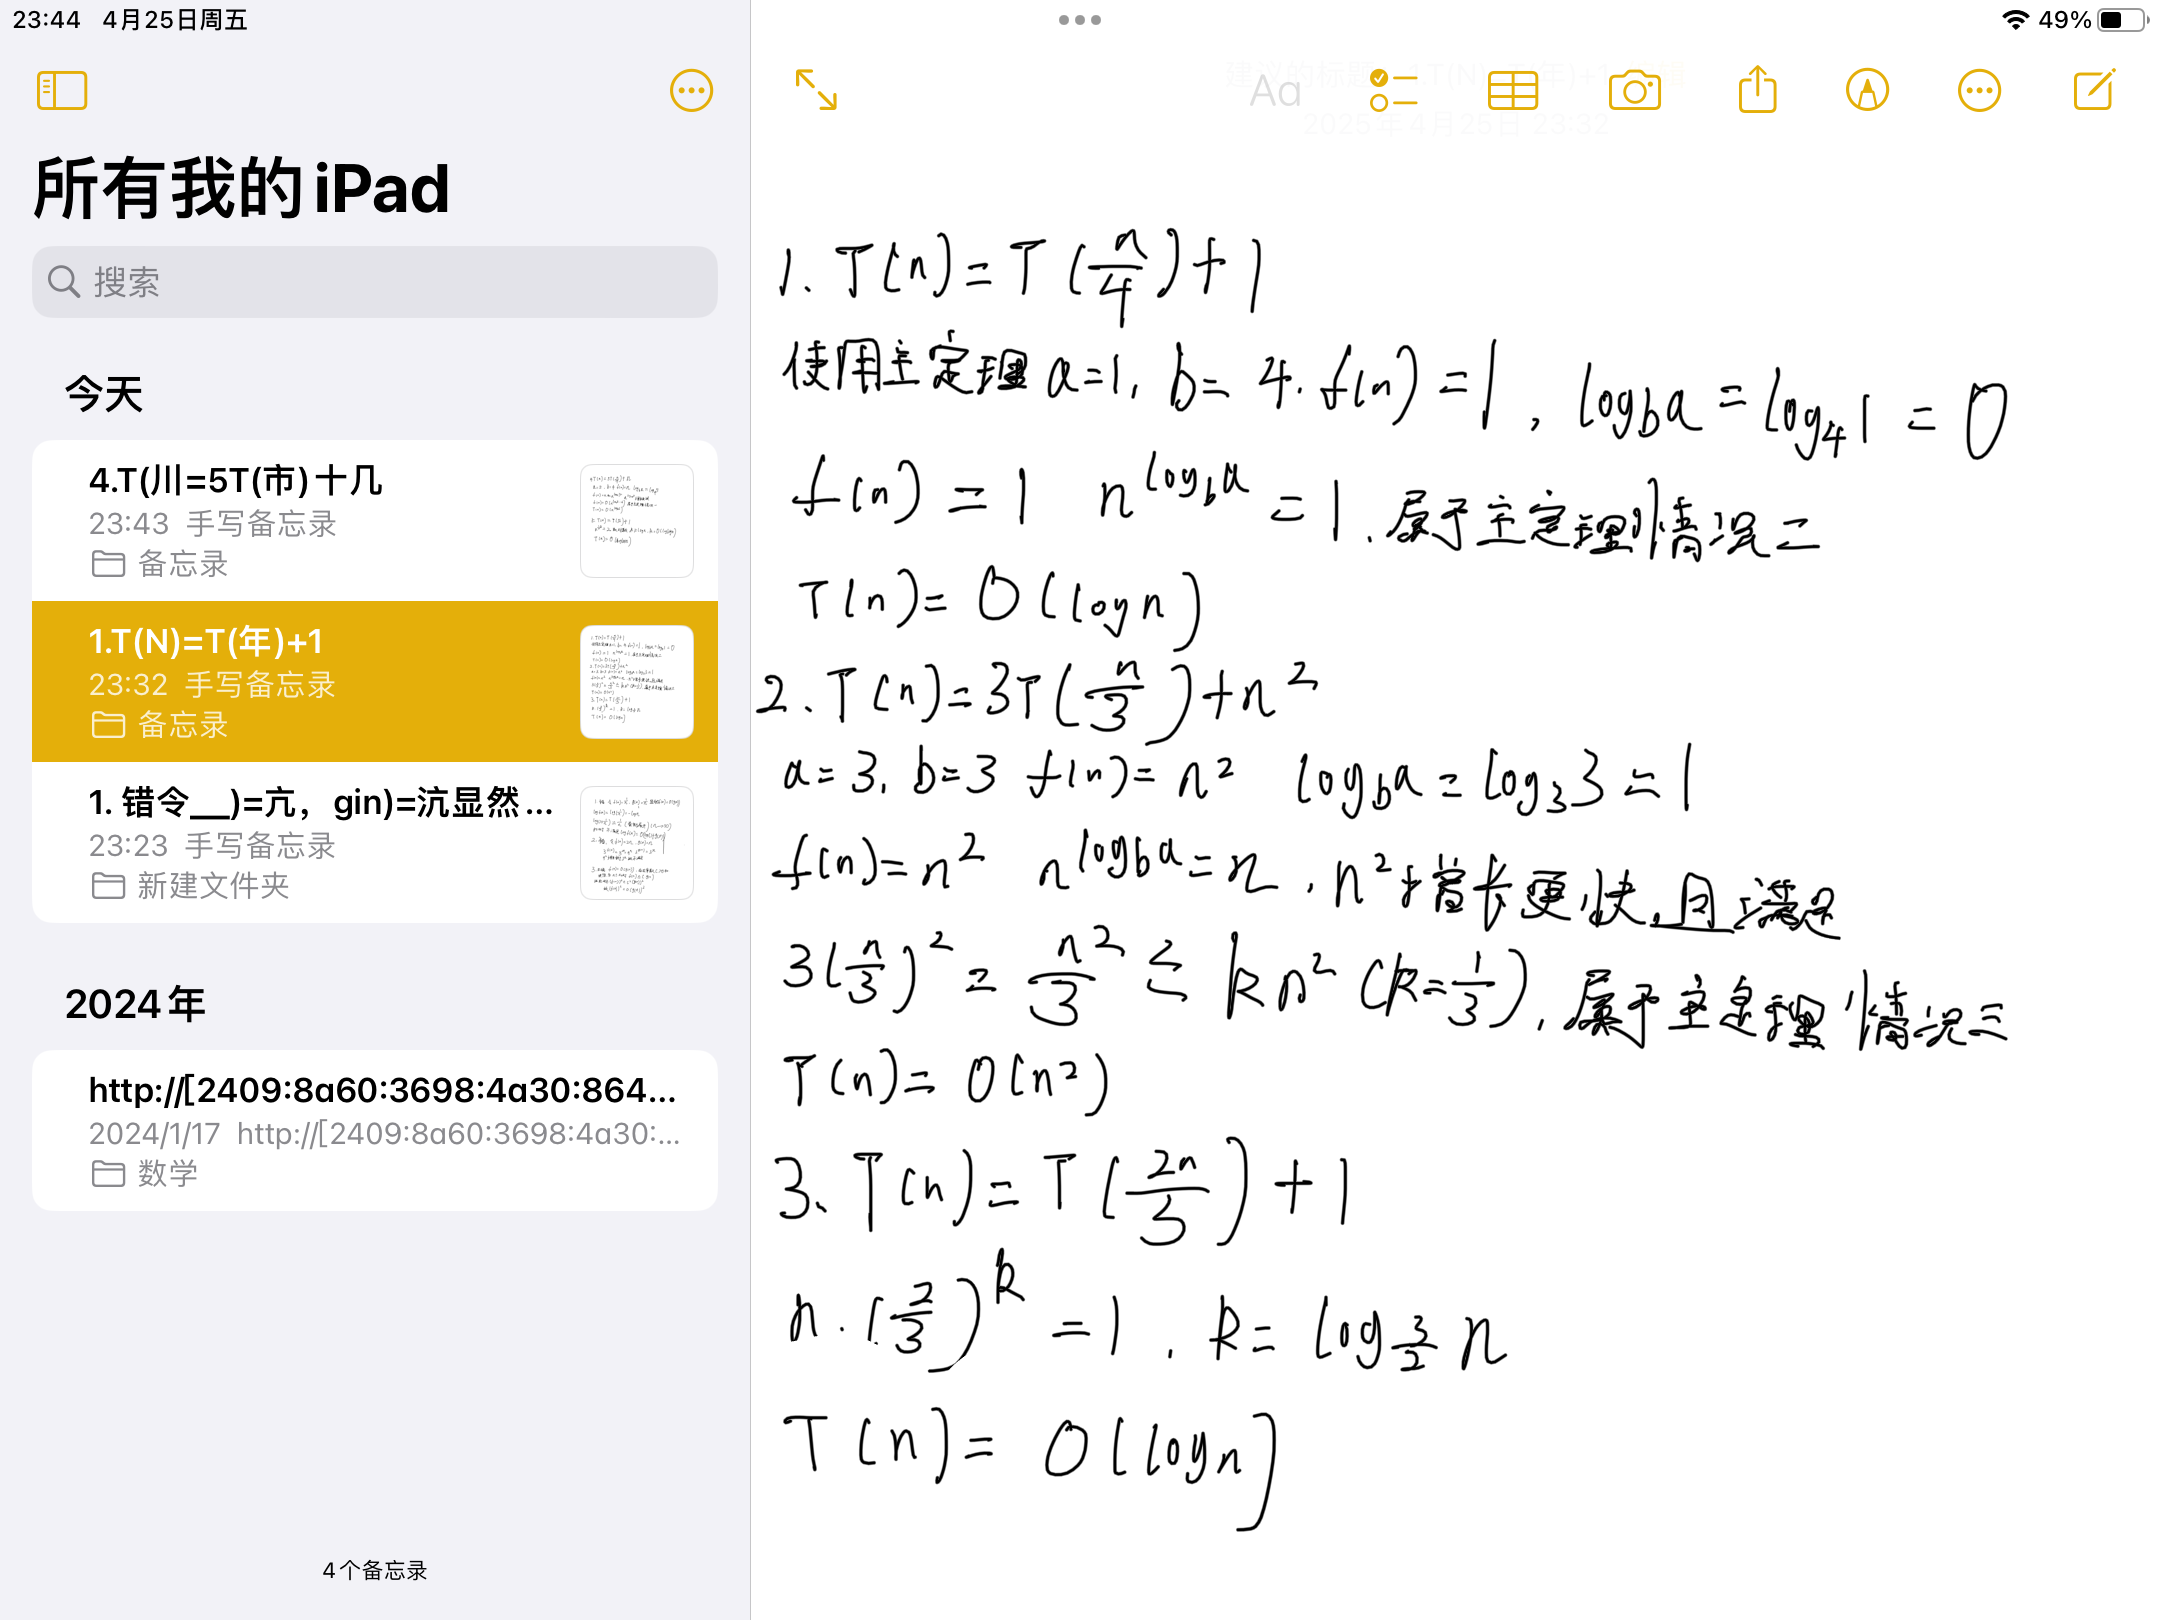 23:44 4月25日周五
49%
所有我的iPad
搜索
今天
4.T(川=5T(市)十几
23:43 手写备忘录
备忘录
1.T(N)=T(年)+1
23:32 手写备忘录
备忘录
1. 错令__)=亢，gin)=沆显然...
23:23 手写备忘录
新建文件夹
2024年
http://[2409:8a60:3698:4a30:864...
2024/1/17 http://[2409:8a60:3698:4a30:...
数学
4个备忘录
Aa
2025年4月25日 23:32
1. T(n)=T(n/4)+1
使用主定理 a=1, b=4. f(n)=1, log_b a = log_4 1 = 0
f(n)=1 n^(log_b a)=1. 属于主定理情况二
T(n)=O(log n)
2. T(n)=3T(n/3)+n²
a=3, b=3 f(n)=n² log_b a = log_3 3 = 1
f(n)=n² n^(log_b a)=n, n²增长更快, 且满足
3(n/3)² = n²/3 ≤ kn² (k=1/3), 属于主定理情况三
T(n)=O(n²)
3、T(n)=T(2n/3)+1
n·(2/3)^k = 1, k = log_(3/2) n
T(n)=O(log n)